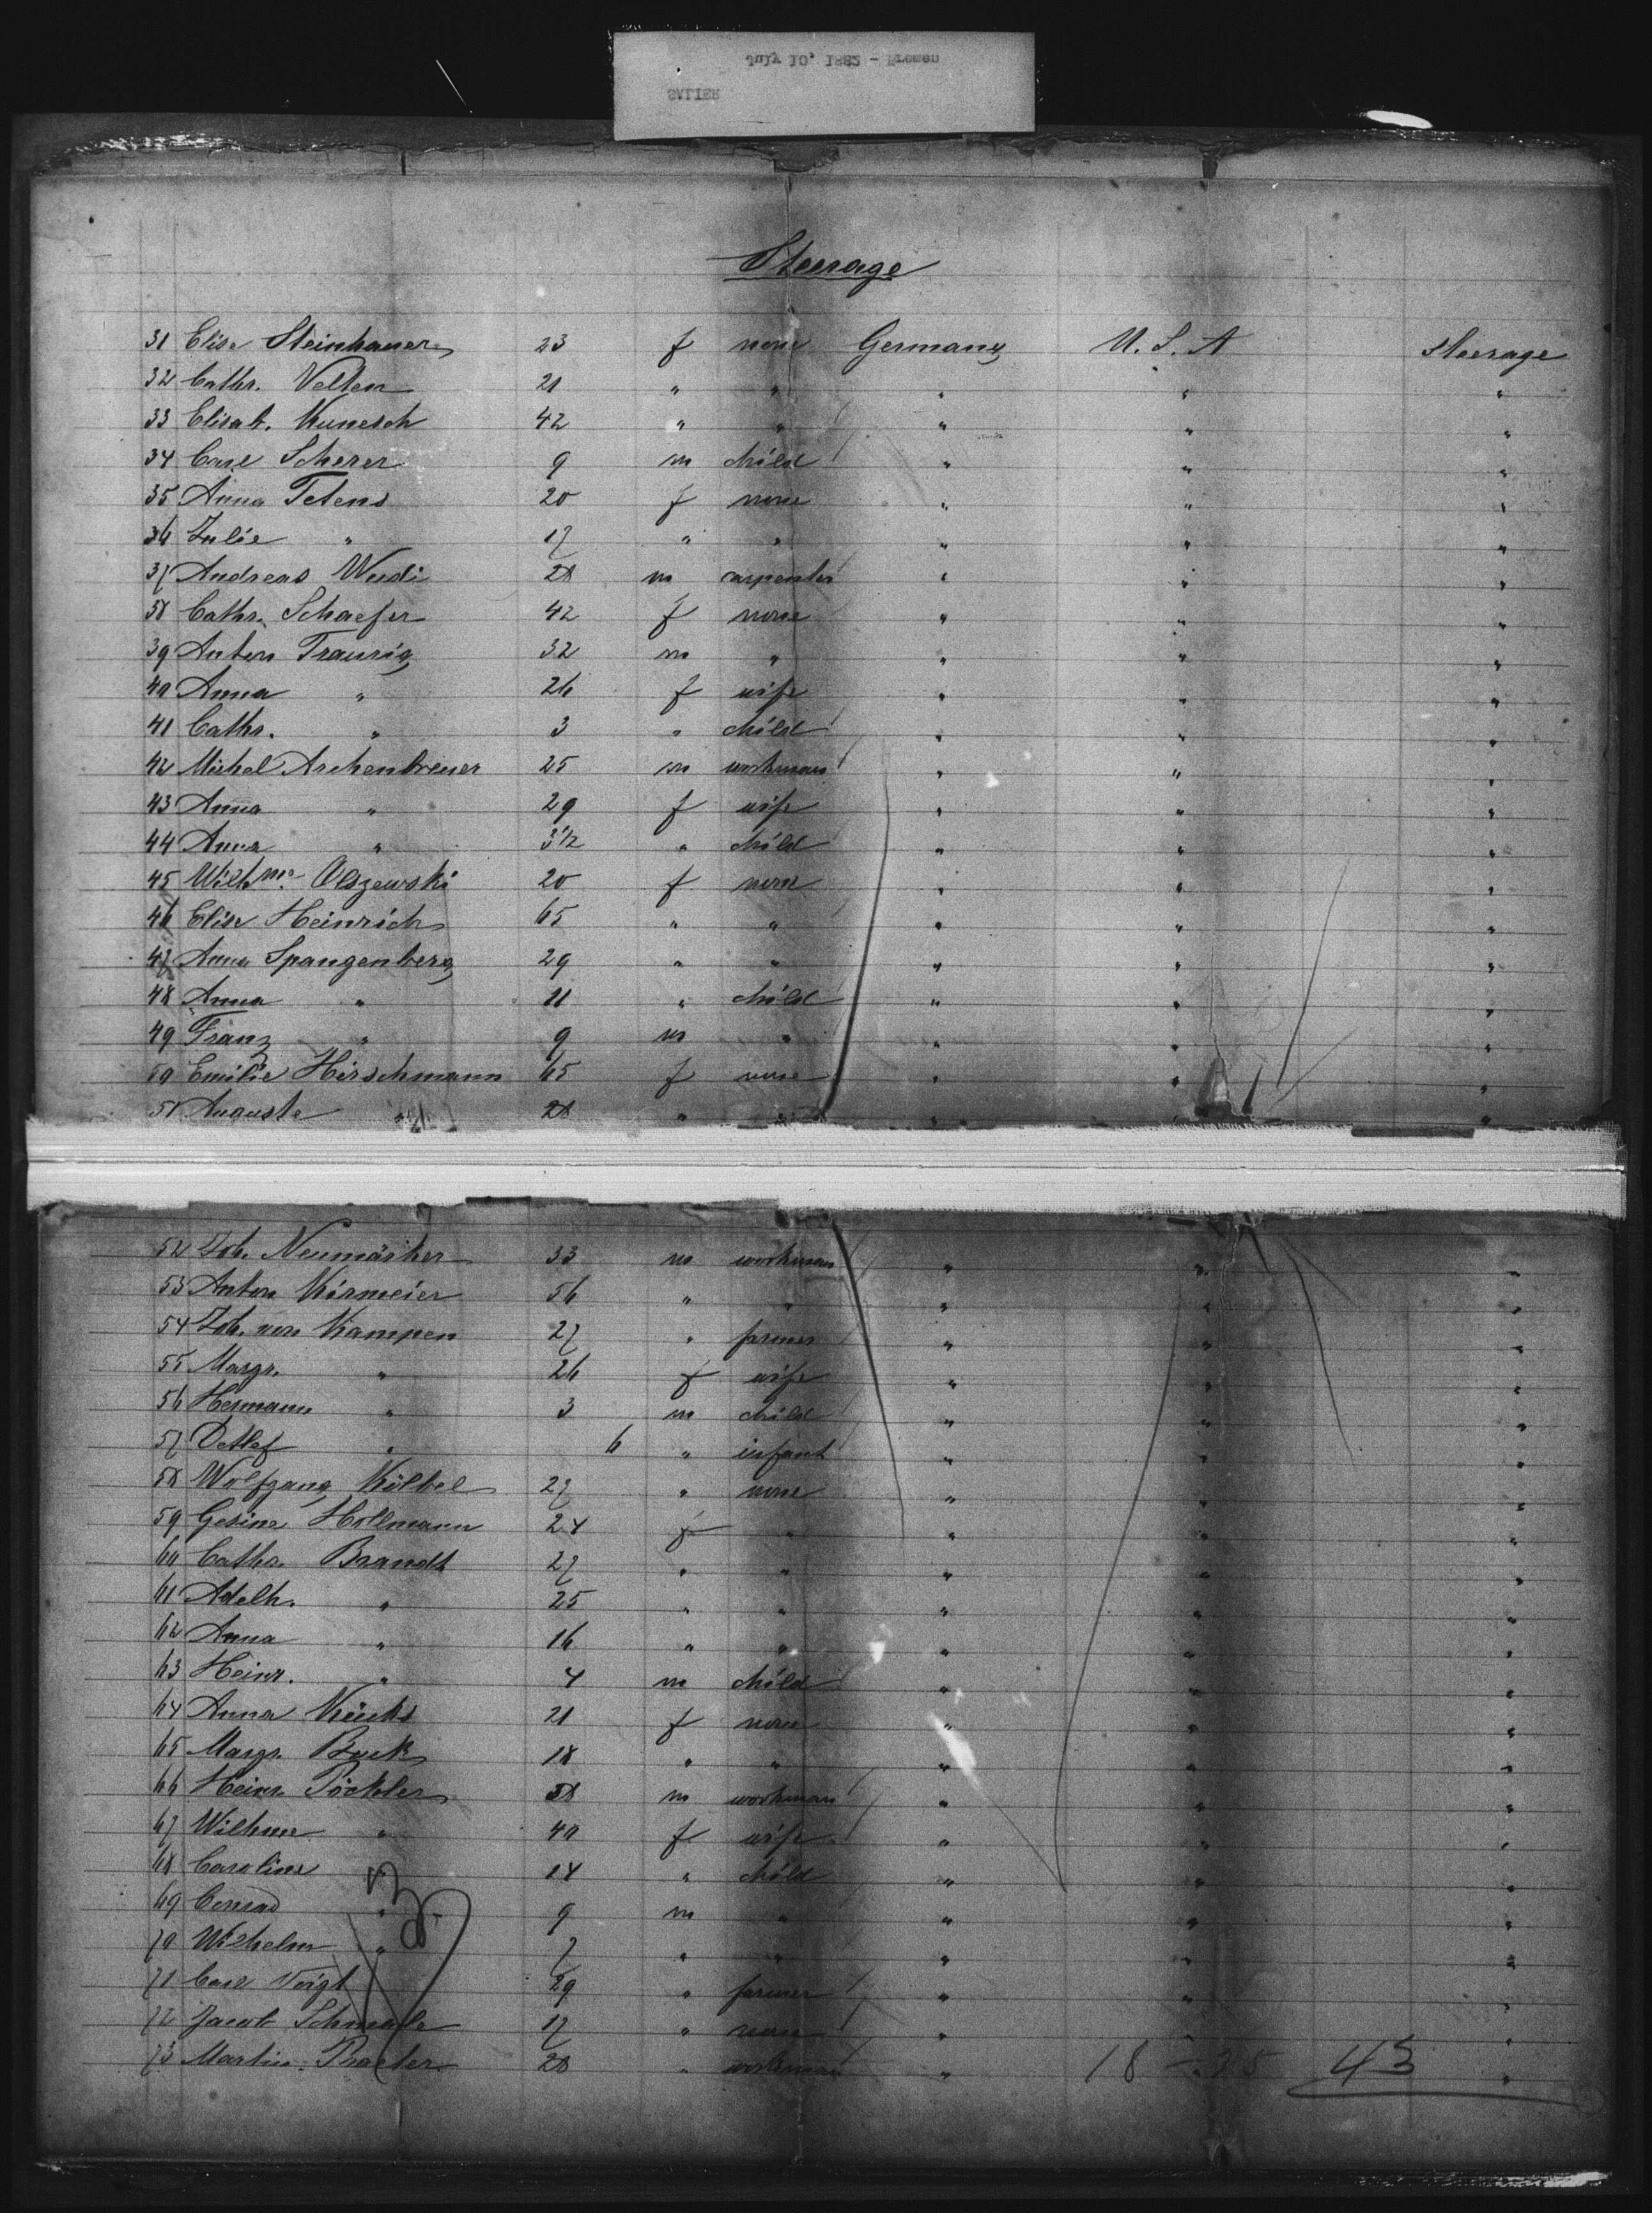 July 10, 1882 - Bremen
SALIER
Steerage
31 Elise Steinhauer 23 f none Germany U.S.A steerage
32 Cathr. Velten 21 " " " " "
33 Elisab. Kunesch 42 " " " " "
34 Carl Scherer 9 m child " " "
35 Anna Tetens 20 f none " " "
36 Julie " 17 " " " " "
37 Andreas Wudi 28 m carpenter " " "
38 Cathr. Schaefer 42 f none " " "
39 Anton Traurig 32 m " " " "
40 Anna " 26 f wife " " "
41 Cathr. " 3 " child " " "
42 Michel Aschenbrener 25 m workman " " "
43 Anna " 29 f wife " " "
44 Anna " 3½ " child " " "
45 Wilhme. Olszewski 20 f none " " "
46 Elise Heinrich 65 " " " " "
47 Anna Spangenberg 29 " " " " "
48 Anna " 11 " child " " "
49 Franz " 9 m " " " "
50 Emilie Hirschmann 65 f none " " "
51 Auguste " 28 " " " " "
52 Joh. Neumärker 33 m workman " " "
53 Anton Kirmeier 56 " " " " "
54 Joh. von Kampen 27 " farmer " " "
55 Margr. " 26 f wife " " "
56 Hermann " 3 m child " " "
57 Detlef " 6 " infant " " "
58 Wolfgang Kölbel 27 " none " " "
59 Gesine Hollmann 24 f " " " "
60 Cathr. Brandt 27 " " " " "
61 Adelh. " 25 " " " " "
62 Anna " 16 " " " " "
63 Heinr. " 4 m child " " "
64 Anna Kücks 21 f none " " "
65 Margr. Buck 18 " " " " "
66 Heinr. Pöckler 38 m workman " " "
67 Wilhme " 40 f wife " " "
68 Caroline " 14 " child " " "
69 Conrad " 9 m " " " "
70 Wilhelm " 7 " " " " "
71 Carl Voigt 29 " farmer " " "
72 Jacob Schmale 17 " none " " "
73 Martin 28 " workman " "
18 - 25 43